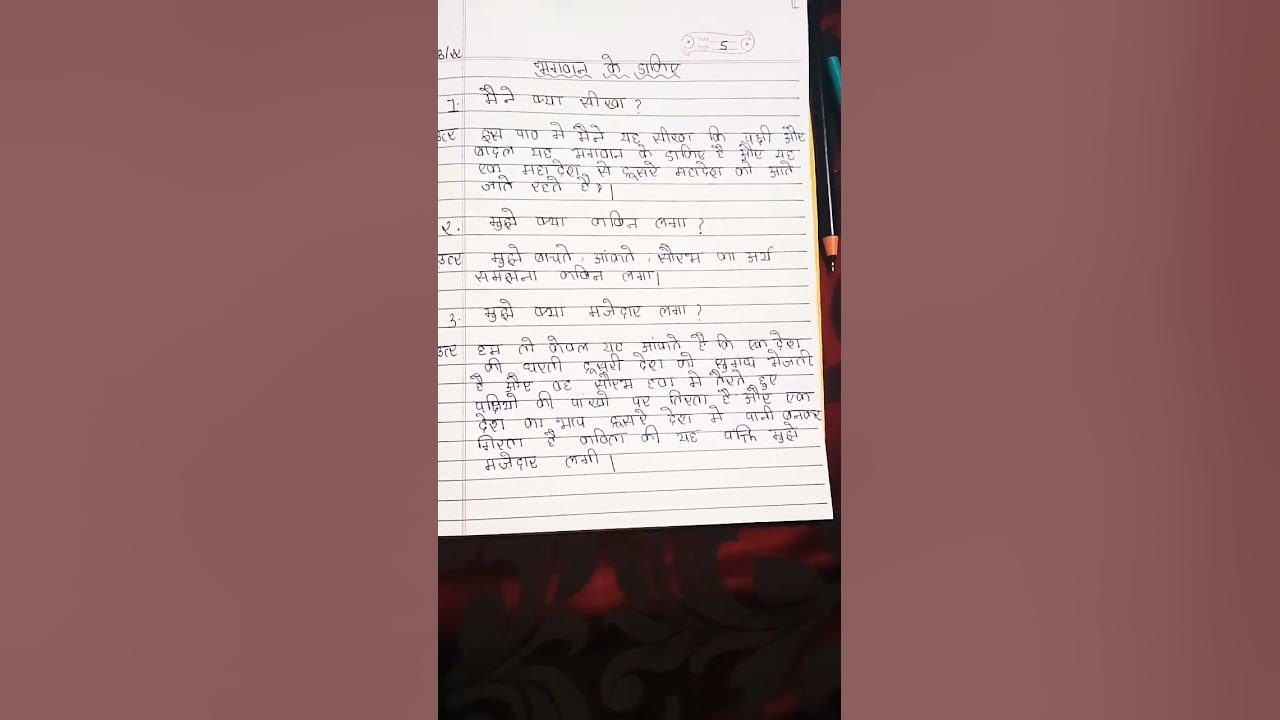 Date
Page 5
भगवान के डाकिए
1. मैने क्या सीखा ?
उत्तर इस पाठ मे मैने यह सीखा कि पक्षी और
बादल यह भगवान के डाकिए है और यह
एक महादेश से दूसरे महादेश को आते
जाते रहते है।
२. मुझे क्या कठिन लगा ?
उत्तर मुझे बाचते, आंकते, सौरभ का अर्थ
समझना कठिन लगा।
3. मुझे क्या मजेदार लगा ?
उत्तर हम तो केवल यह आंकते है कि एक देश
की धरती दूसरी देश को सुगंध भेजती
है और वह सौरभ हवा मे तैरते हुए
पक्षियो की पांखो पर तिरता है और एक
देश का भाप दूसरे देश मे पानी बनकर
गिरता है कविता की यह पंक्ति मुझे
मजेदार लगी।